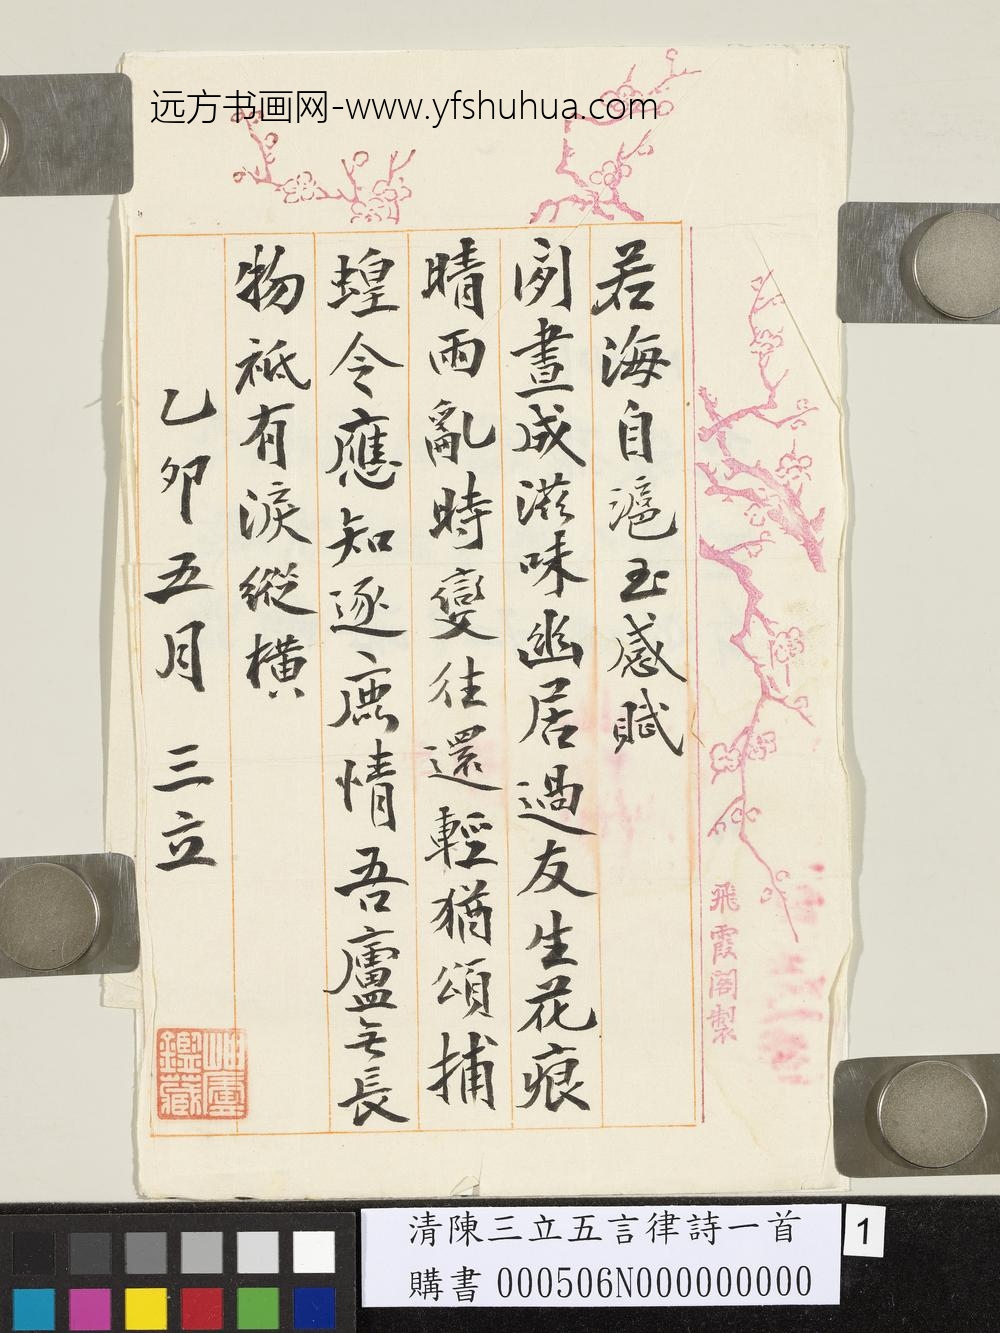 远方书画网-www.yfshuhua.com
若海自滬至感賦
閒晝成滋味幽居過友生花痕
晴雨亂時變往還輕猶頌捕
蝗令應知逐鹿情吾廬无長
物祗有淚縱橫
乙卯五月 三立
岫廬
鑑藏
飛霞閣製
清陳三立五言律詩一首
購書 000506N000000000
1